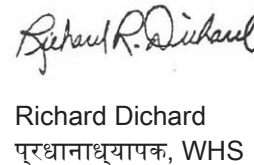 Richard R. Dichard
Richard Dichard
प्रधानाध्यापक, WHS